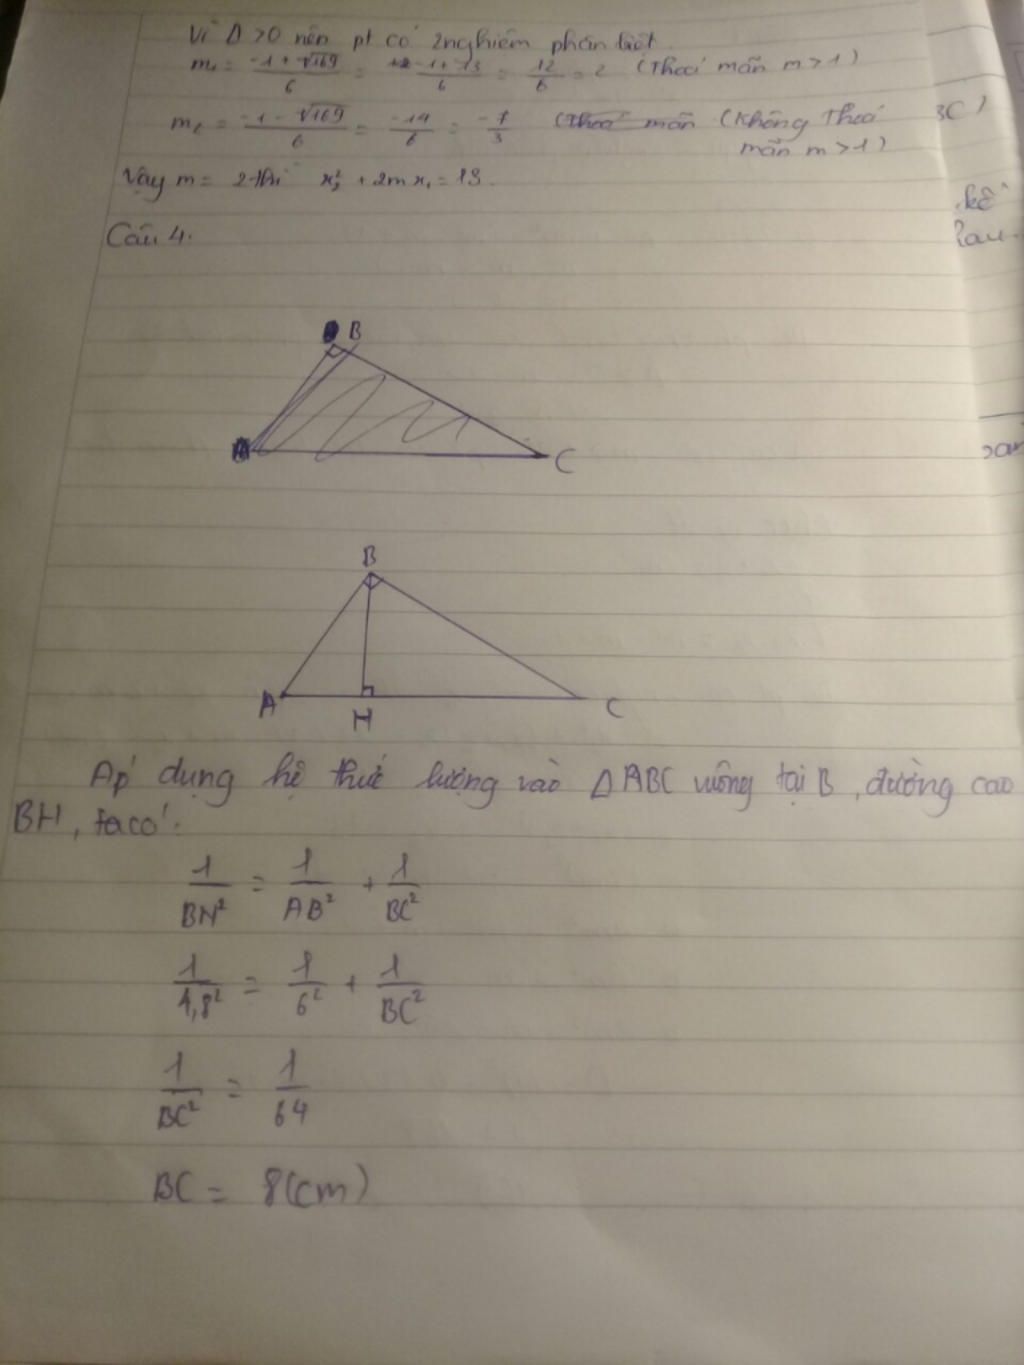 Vì Δ >0 nên pt có 2 nghiệm phân biệt.
m₁ = (-1 + √169)/6 = (-1 + 13)/6 = 12/6 = 2 (Thoả mãn m > 1)
m₂ = (-1 - √169)/6 = -14/6 = -7/3 (Thoả mãn (Không Thoả
mãn m > 1)
BC)
Vậy m = 2 thì x₂² + 2m x₁ = 13.
kề
Câu 4.
B
A
C
B
A
H
C
Áp dụng hệ thức lượng vào Δ ABC vuông tại B, đường cao
BH, ta có:
1/BH² = 1/AB² + 1/BC²
1/4,8² = 1/6² + 1/BC²
1/BC² = 1/64
BC = 8(cm)